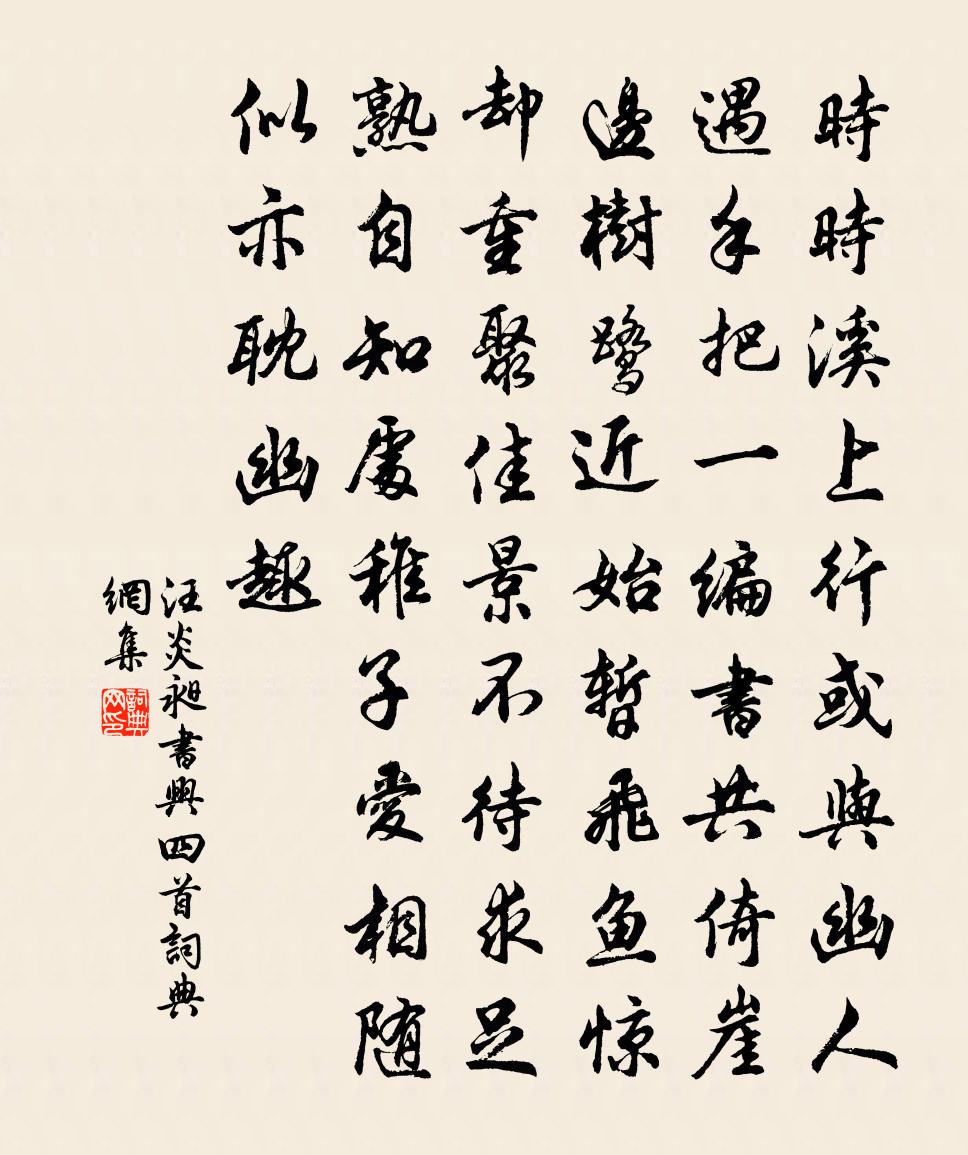 時時溪上行或與幽人
遇手把一编書共倚崖
邊樹鹭近始暫飛鱼惊
却重聚佳景不待求足
熟自知處稚子愛相随
似亦耽幽趣
汪炎昶書興四首詞典
網集
詞典网印